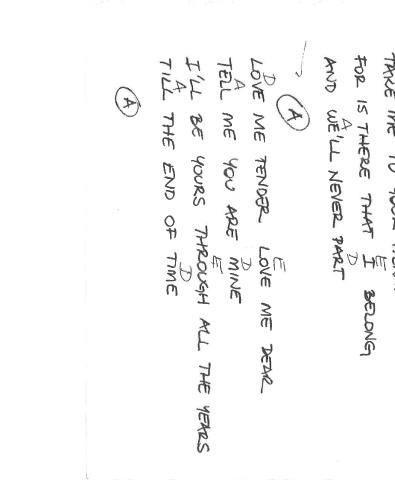 TAKE ME TO YOUR
E
FOR IS THERE THAT I BELONG
A D
AND WE'LL NEVER PART
A
D E
LOVE ME TENDER LOVE ME DEAR
A D
TELL ME YOU ARE MINE
E
I'LL BE YOURS THROUGH ALL THE YEARS
A D
TILL THE END OF TIME
A